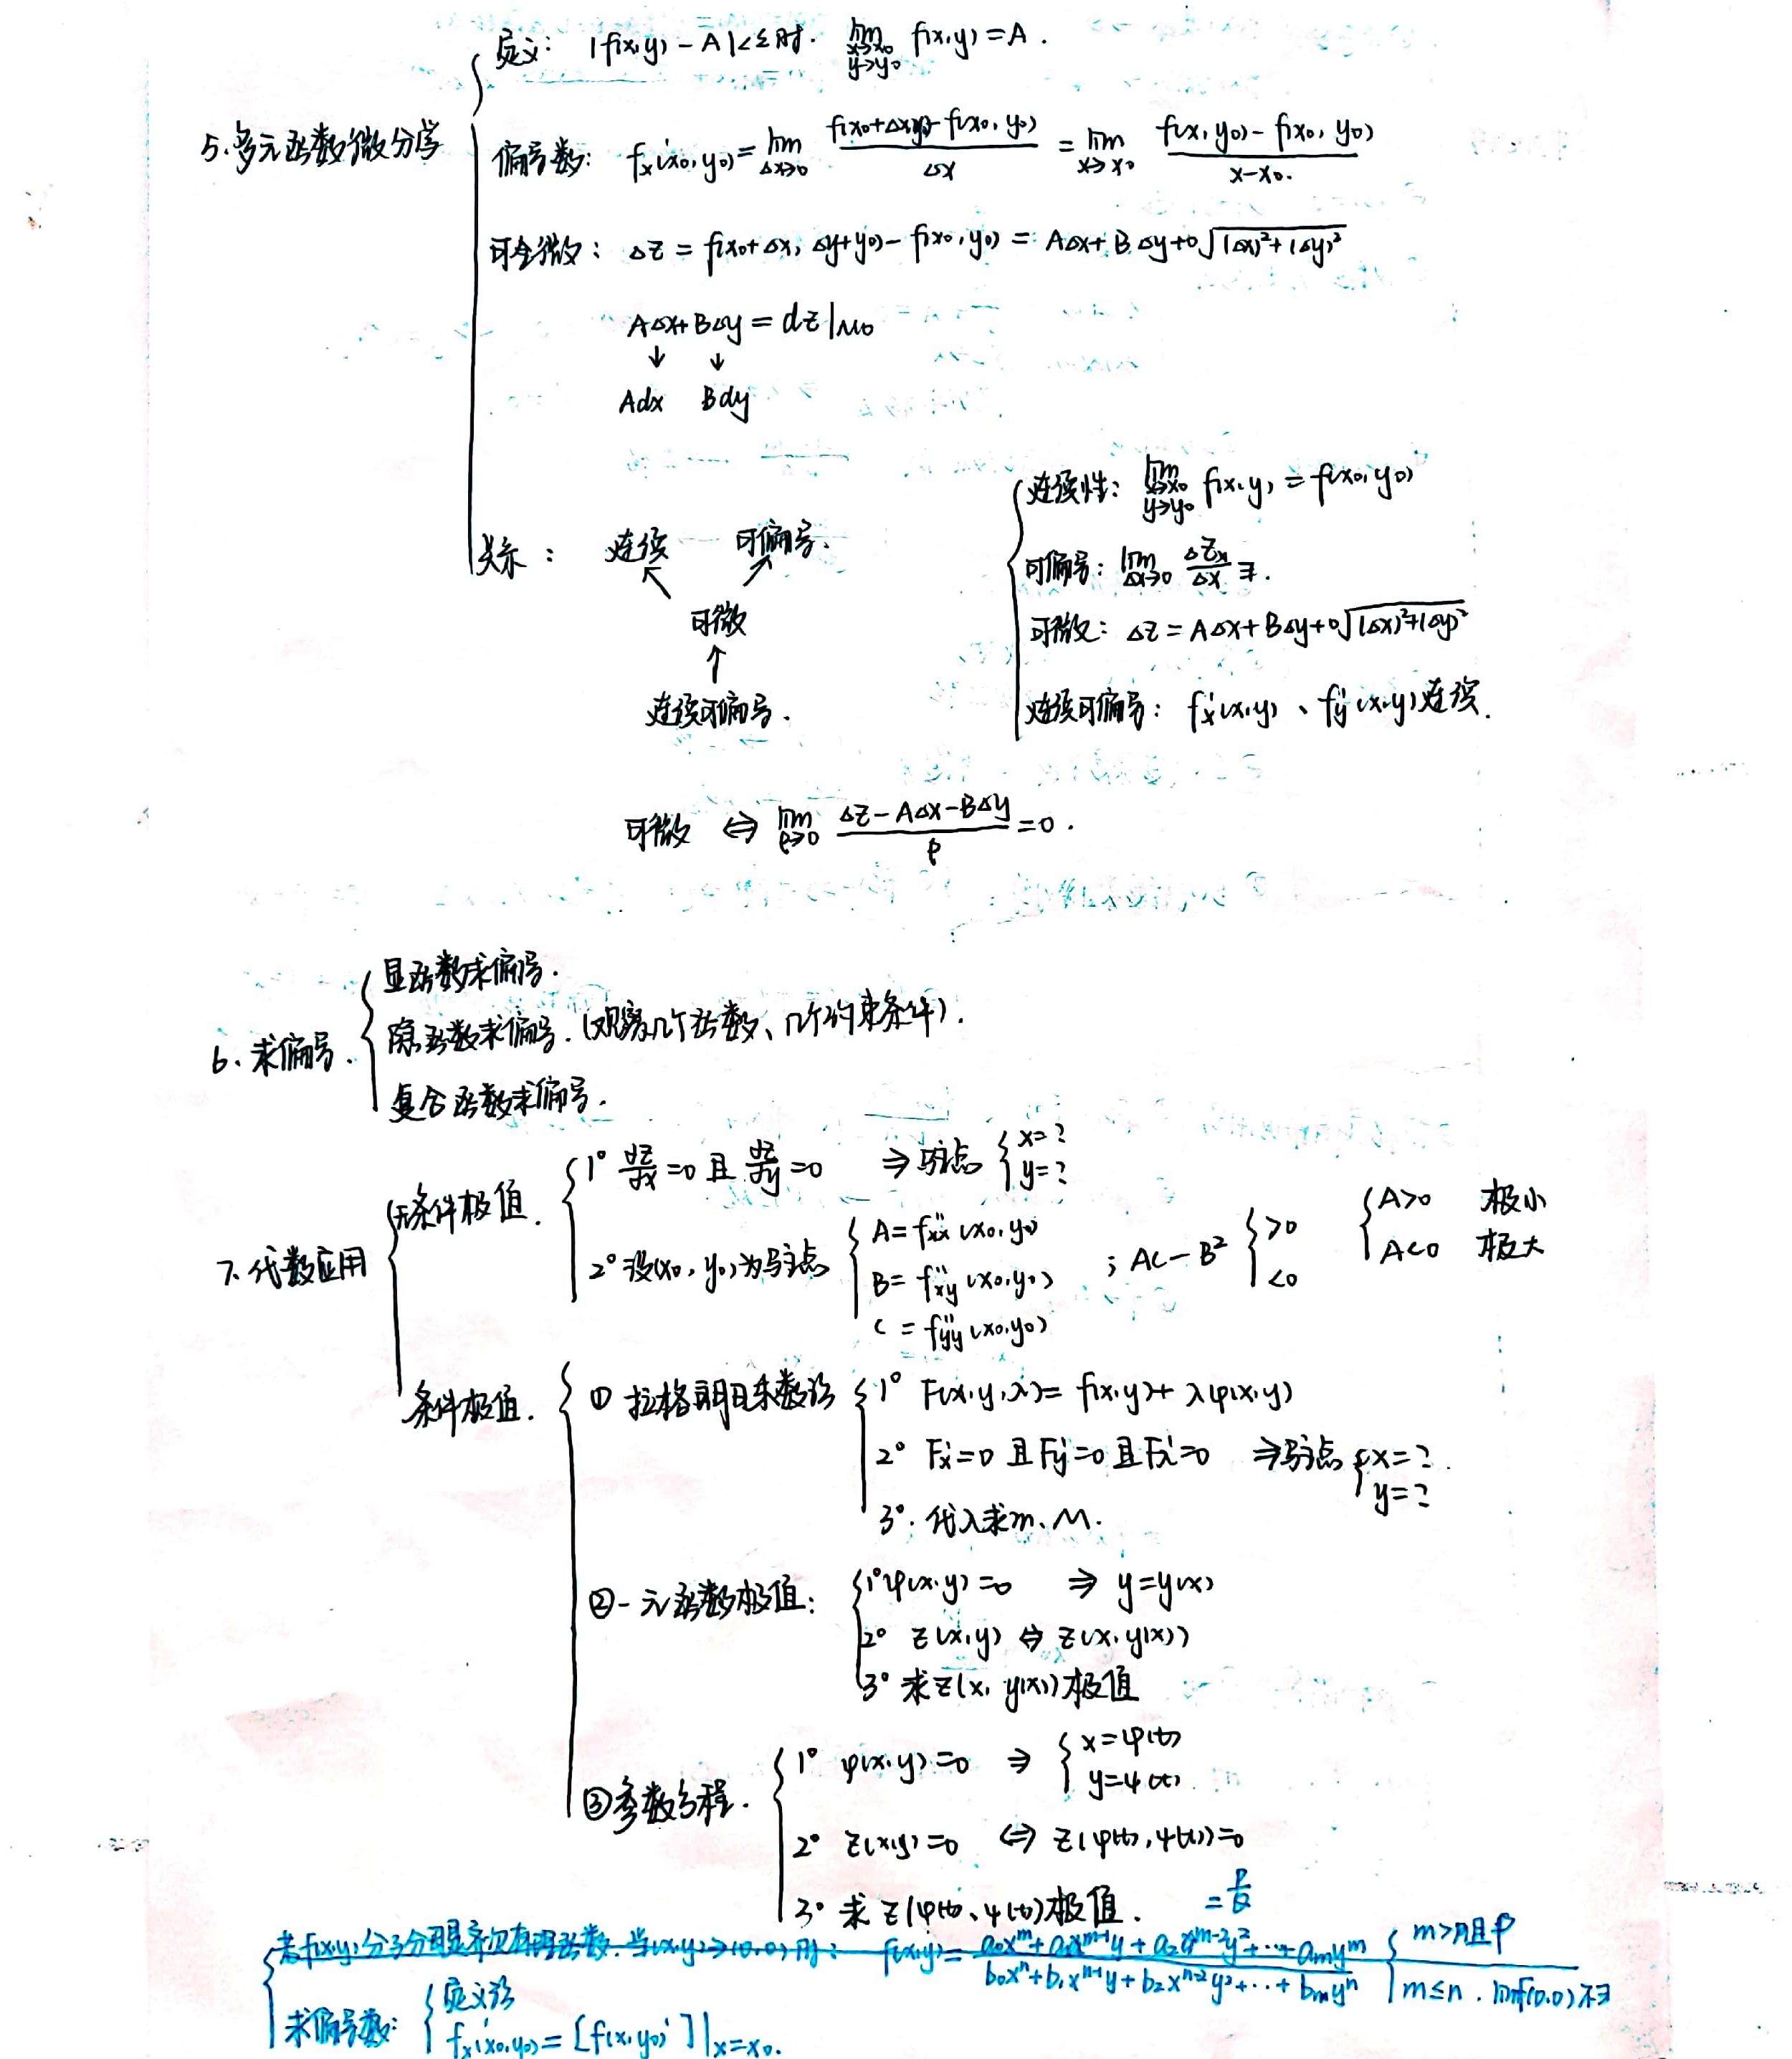 5.多元函数微分学
定义: |f(x,y)-A|<ε时. lim x→x0 y→y0 f(x,y)=A.
偏导数: fx'(x0,y0)=lim Δx→0 (f(x0+Δx,y0)-f(x0,y0))/Δx = lim x→x0 (f(x,y0)-f(x0,y0))/(x-x0).
可全微: Δz=f(x0+Δx,Δy+y0)-f(x0,y0)=AΔx+BΔy+o√((Δx)²+(Δy)²)
AΔx+BΔy=dz|M0
↓ ↓
Adx Bdy
关系: 连续 可偏导.
↖ ↗
可微
↑
连续可偏导.
连续性: lim x→x0 y→y0 f(x,y)=f(x0,y0)
可偏导: lim Δx→0 Δzx/Δx ∃.
可微: Δz=AΔx+BΔy+o√((Δx)²+(Δy)²)
连续可偏导: fx'(x,y)、fy'(x,y)连续.
可微 ⇔ lim ρ→0 (Δz-AΔx-BΔy)/ρ=0.
6、求偏导.
显函数求偏导.
隐函数求偏导.(观察几个函数、几个约束条件).
复合函数求偏导.
7.代数应用
无条件极值.
1° ∂z/∂x=0 且 ∂z/∂y=0 ⇒ 驻点 { x=? y=?
2° 设(x0,y0)为驻点 { A=fxx''(x0,y0)
B=fxy''(x0,y0) ; AC-B² { >0 <0 { A>0 极小 A<0 极大
C=fyy''(x0,y0)
条件极值.
① 拉格朗日乘数法 { 1° F(x,y,λ)=f(x,y)+λφ(x,y)
2° Fx'=0 且Fy'=0 且Fλ'=0 ⇒驻点 { x=? y=?
3°.代入求m、M.
②一元函数极值: { 1°φ(x,y)=0 ⇒ y=y(x)
2° z(x,y) ⇔ z(x,y(x))
3° 求z(x,y(x))极值
③参数方程. { 1° φ(x,y)=0 ⇒ { x=φ(t) y=ψ(t)
2° z(x,y)=0 ⇔ z(φ(t),ψ(t))=0
3° 求z(φ(t)、ψ(t))极值.
=P/Q
若f(x,y)分子分母是齐次有理函数.当(x,y)→(0,0)时: f(x,y)=(a0x^m+a1x^(m-1)y+a2x^(m-2)y²+…+amy^m)/(b0x^n+b1x^(n-1)y+b2x^(n-2)y²+…+bmy^n) { m>n且P
m≤n.limf(0,0)不∃
求偏导数: { 定义法
fx'(x0,y0)=[f(x,y0)']|x=x0.